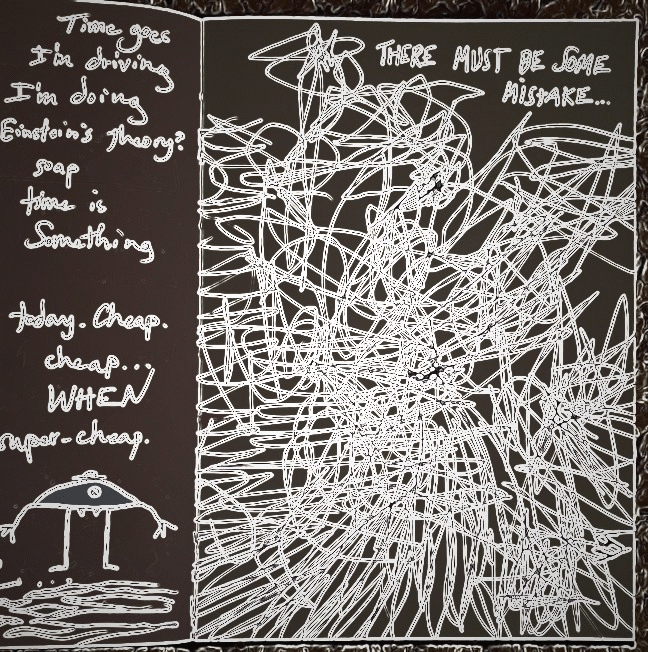 Time goes
I'm driving
I'm doing
Einstein's Theory?
soap
time is
Something
today. Cheap.
cheap...
WHEN
super-cheap.
THERE MUST BE SOME
MISTAKE...